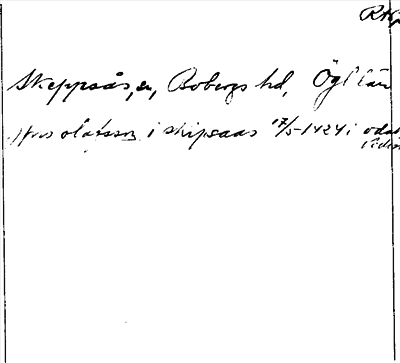 Skeppsås, sn, Bobergs hd, Ögl län
olafsson i skipsaas 17/5-1424 i